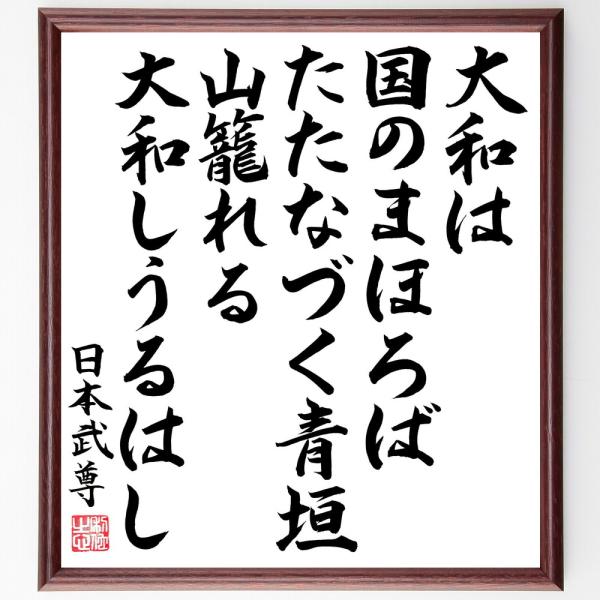 大和は
国のまほろば
たたなづく青垣
山籠れる
大和しうるはし
日本武尊